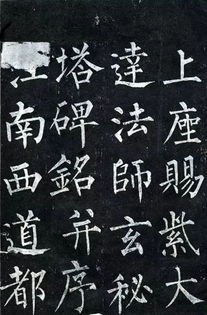 上座賜紫大
達法師玄秘
塔碑銘并序
江南西道都